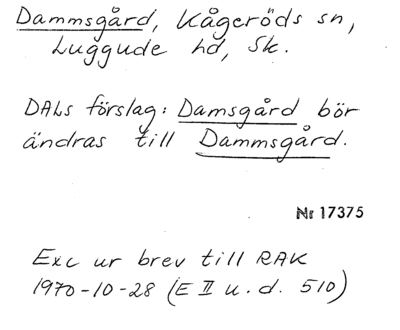 Dammsgård, Kågeröds sn,
Luggude hd, Sk.
DALs förslag: Damsgård bör
ändras till Dammsgård.
Nr 17375
Exc ur brev till RAK
1970-10-28 (E II u.d. 510)